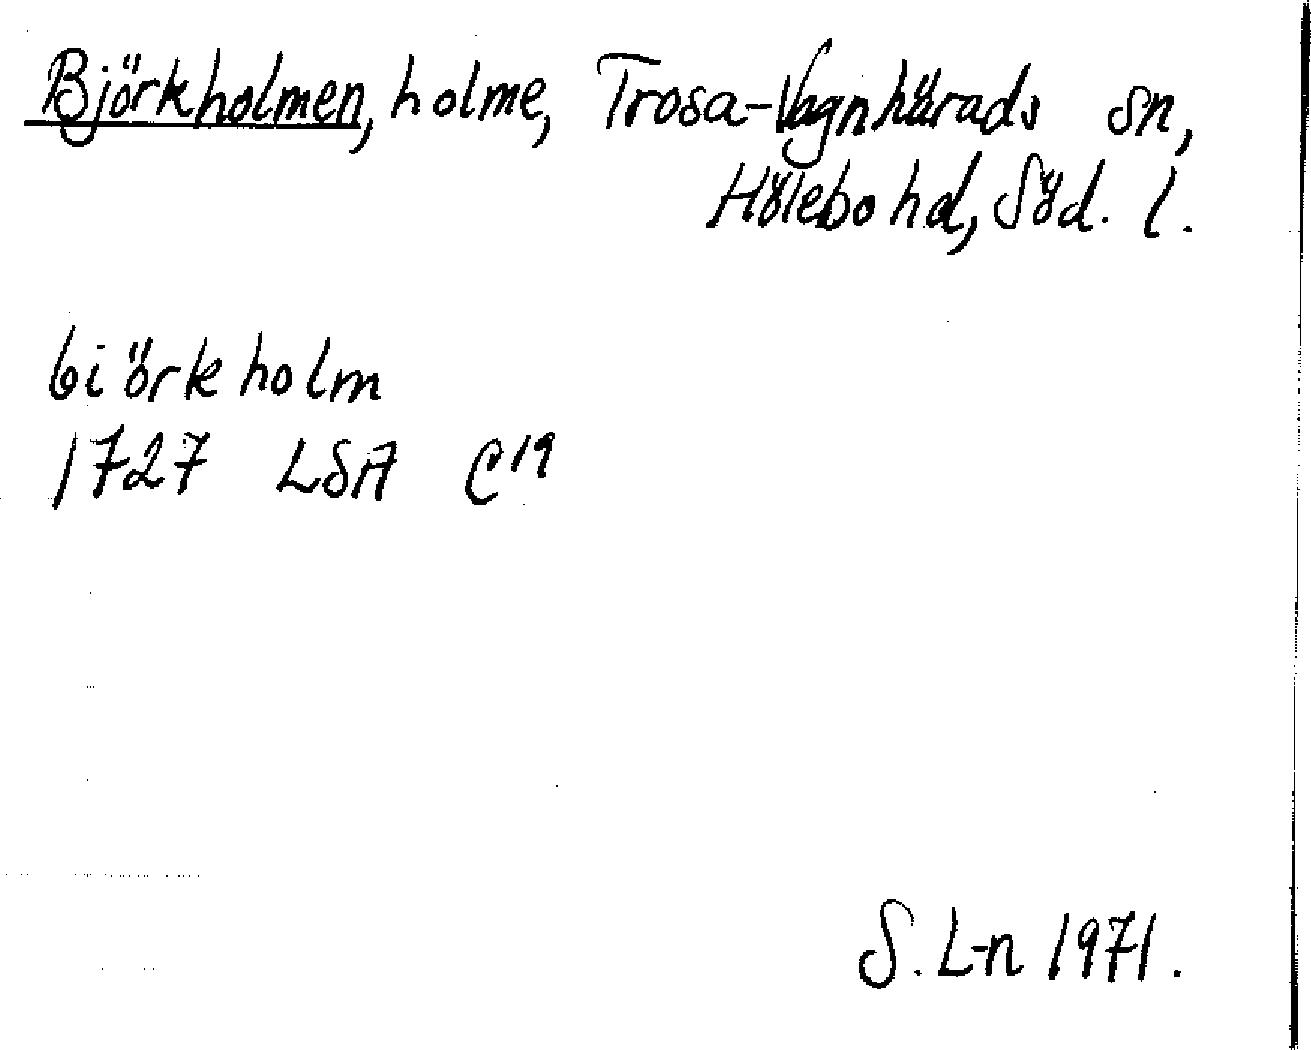 Björkholmen, holme, Trosa-Vagnhärads sn,
Hölebo hd, Söd. l.
biörkholm
1727 LSA C19
S. L-n 1971.